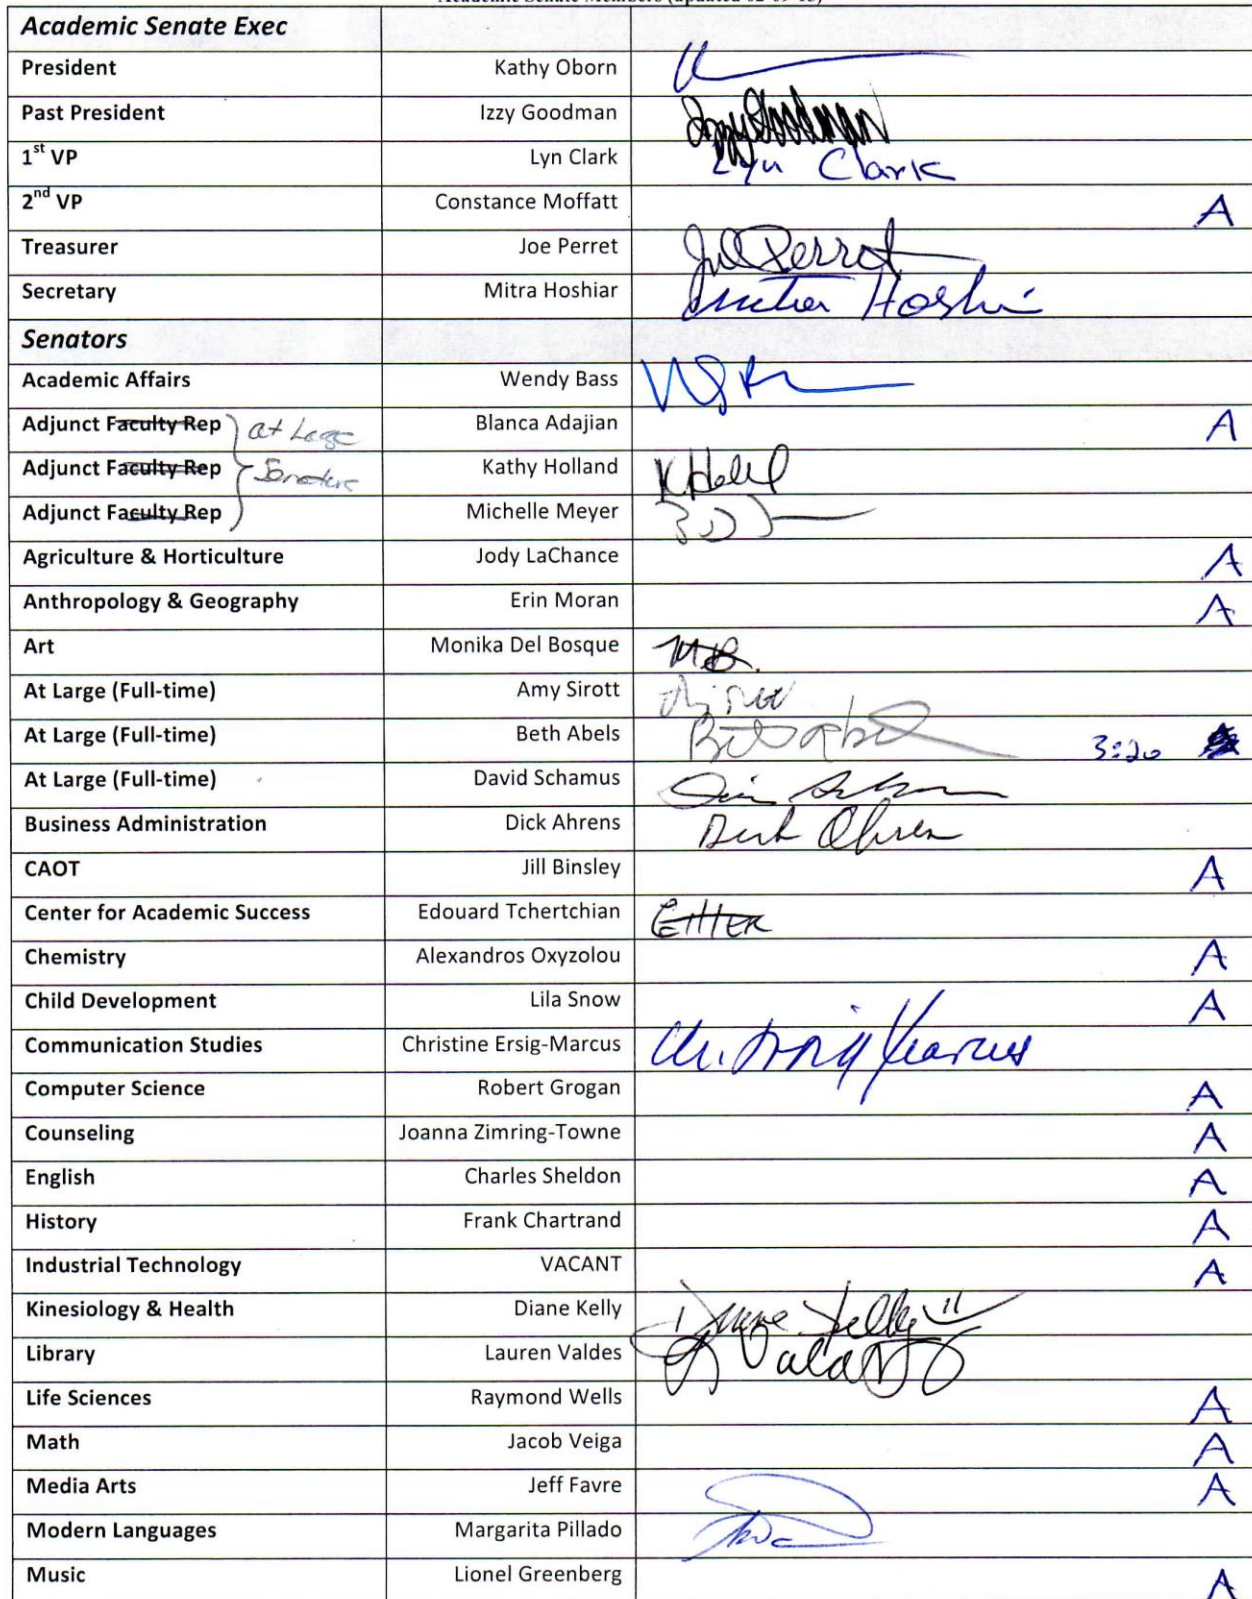 Academic Senate Exec
President Kathy Oborn
Past President Izzy Goodman Izzy Goodman
1st VP Lyn Clark Lyn Clark
2nd VP Constance Moffatt A
Treasurer Joe Perret
Secretary Mitra Hoshiar
Senators
Academic Affairs Wendy Bass
Adjunct Faculty Rep at Large Blanca Adajian A
Adjunct Faculty Rep Kathy Holland
Adjunct Faculty Rep Michelle Meyer
Agriculture & Horticulture Jody LaChance A
Anthropology & Geography Erin Moran A
Art Monika Del Bosque MB.
At Large (Full-time) Amy Sirott
At Large (Full-time) Beth Abels 3:20
At Large (Full-time) David Schamus
Business Administration Dick Ahrens
CAOT Jill Binsley A
Center for Academic Success Edouard Tchertchian
Chemistry Alexandros Oxyzolou A
Child Development Lila Snow A
Communication Studies Christine Ersig-Marcus
Computer Science Robert Grogan A
Counseling Joanna Zimring-Towne A
English Charles Sheldon A
History Frank Chartrand A
Industrial Technology VACANT A
Kinesiology & Health Diane Kelly
Library Lauren Valdes
Life Sciences Raymond Wells A
Math Jacob Veiga A
Media Arts Jeff Favre A
Modern Languages Margarita Pillado
Music Lionel Greenberg A